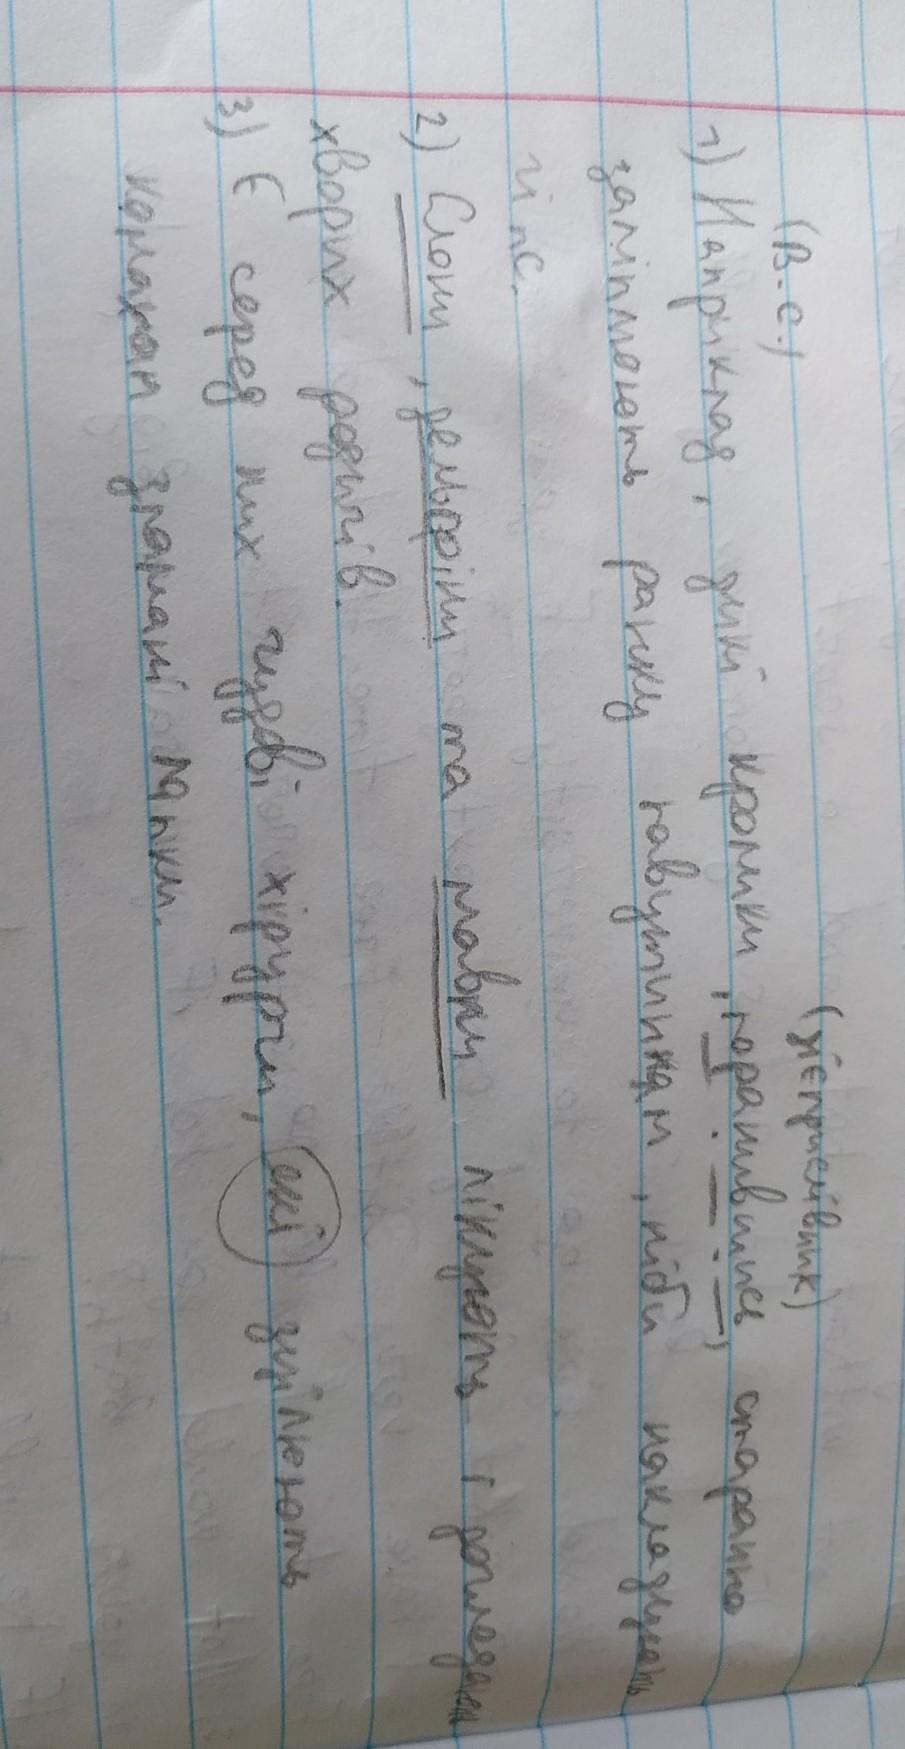 (В.с.) (дієприслівник)
1) Наприклад, дикі кролики, поранившись, старанно
заліплюють ранку павутинням, ніби накладують
гіпс.
2) Слони, дельфіни та мавпи лікують і доглядають
хворих родичів.
3) Є серед них чудові хірурги, які зцілюють
комахам зламані лапки.